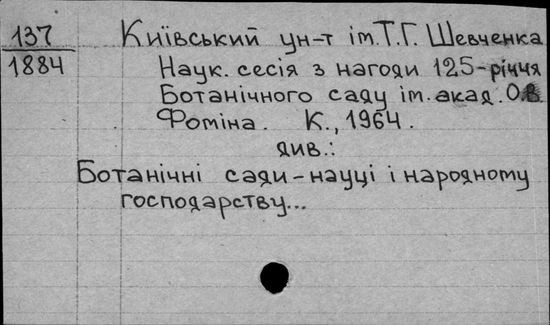 137
1884
Київський ун-т ім. Т.Г. Шевченка
Наук. сесія з нагоди 125-річчя
Ботанічного саду ім. акад. О.В.
Фоміна. К., 1964.
див.:
Ботанічні сади-науці і народному
господарству...